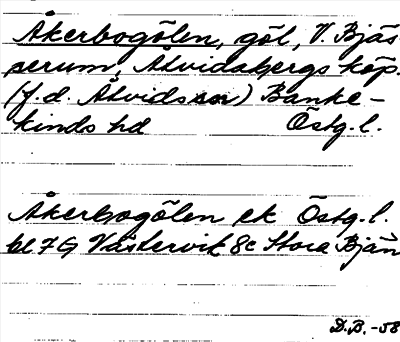 Åkerbogölen, göl, V. Bjäs
serum, Åtvidabergs köp.
(f.d. Åtvids sn) Banke-
kinds hd Östg.l.
Åkerbogölen ek Östg.l.
bl 7G Västervik 8c Stora Bjän
D.B. -58